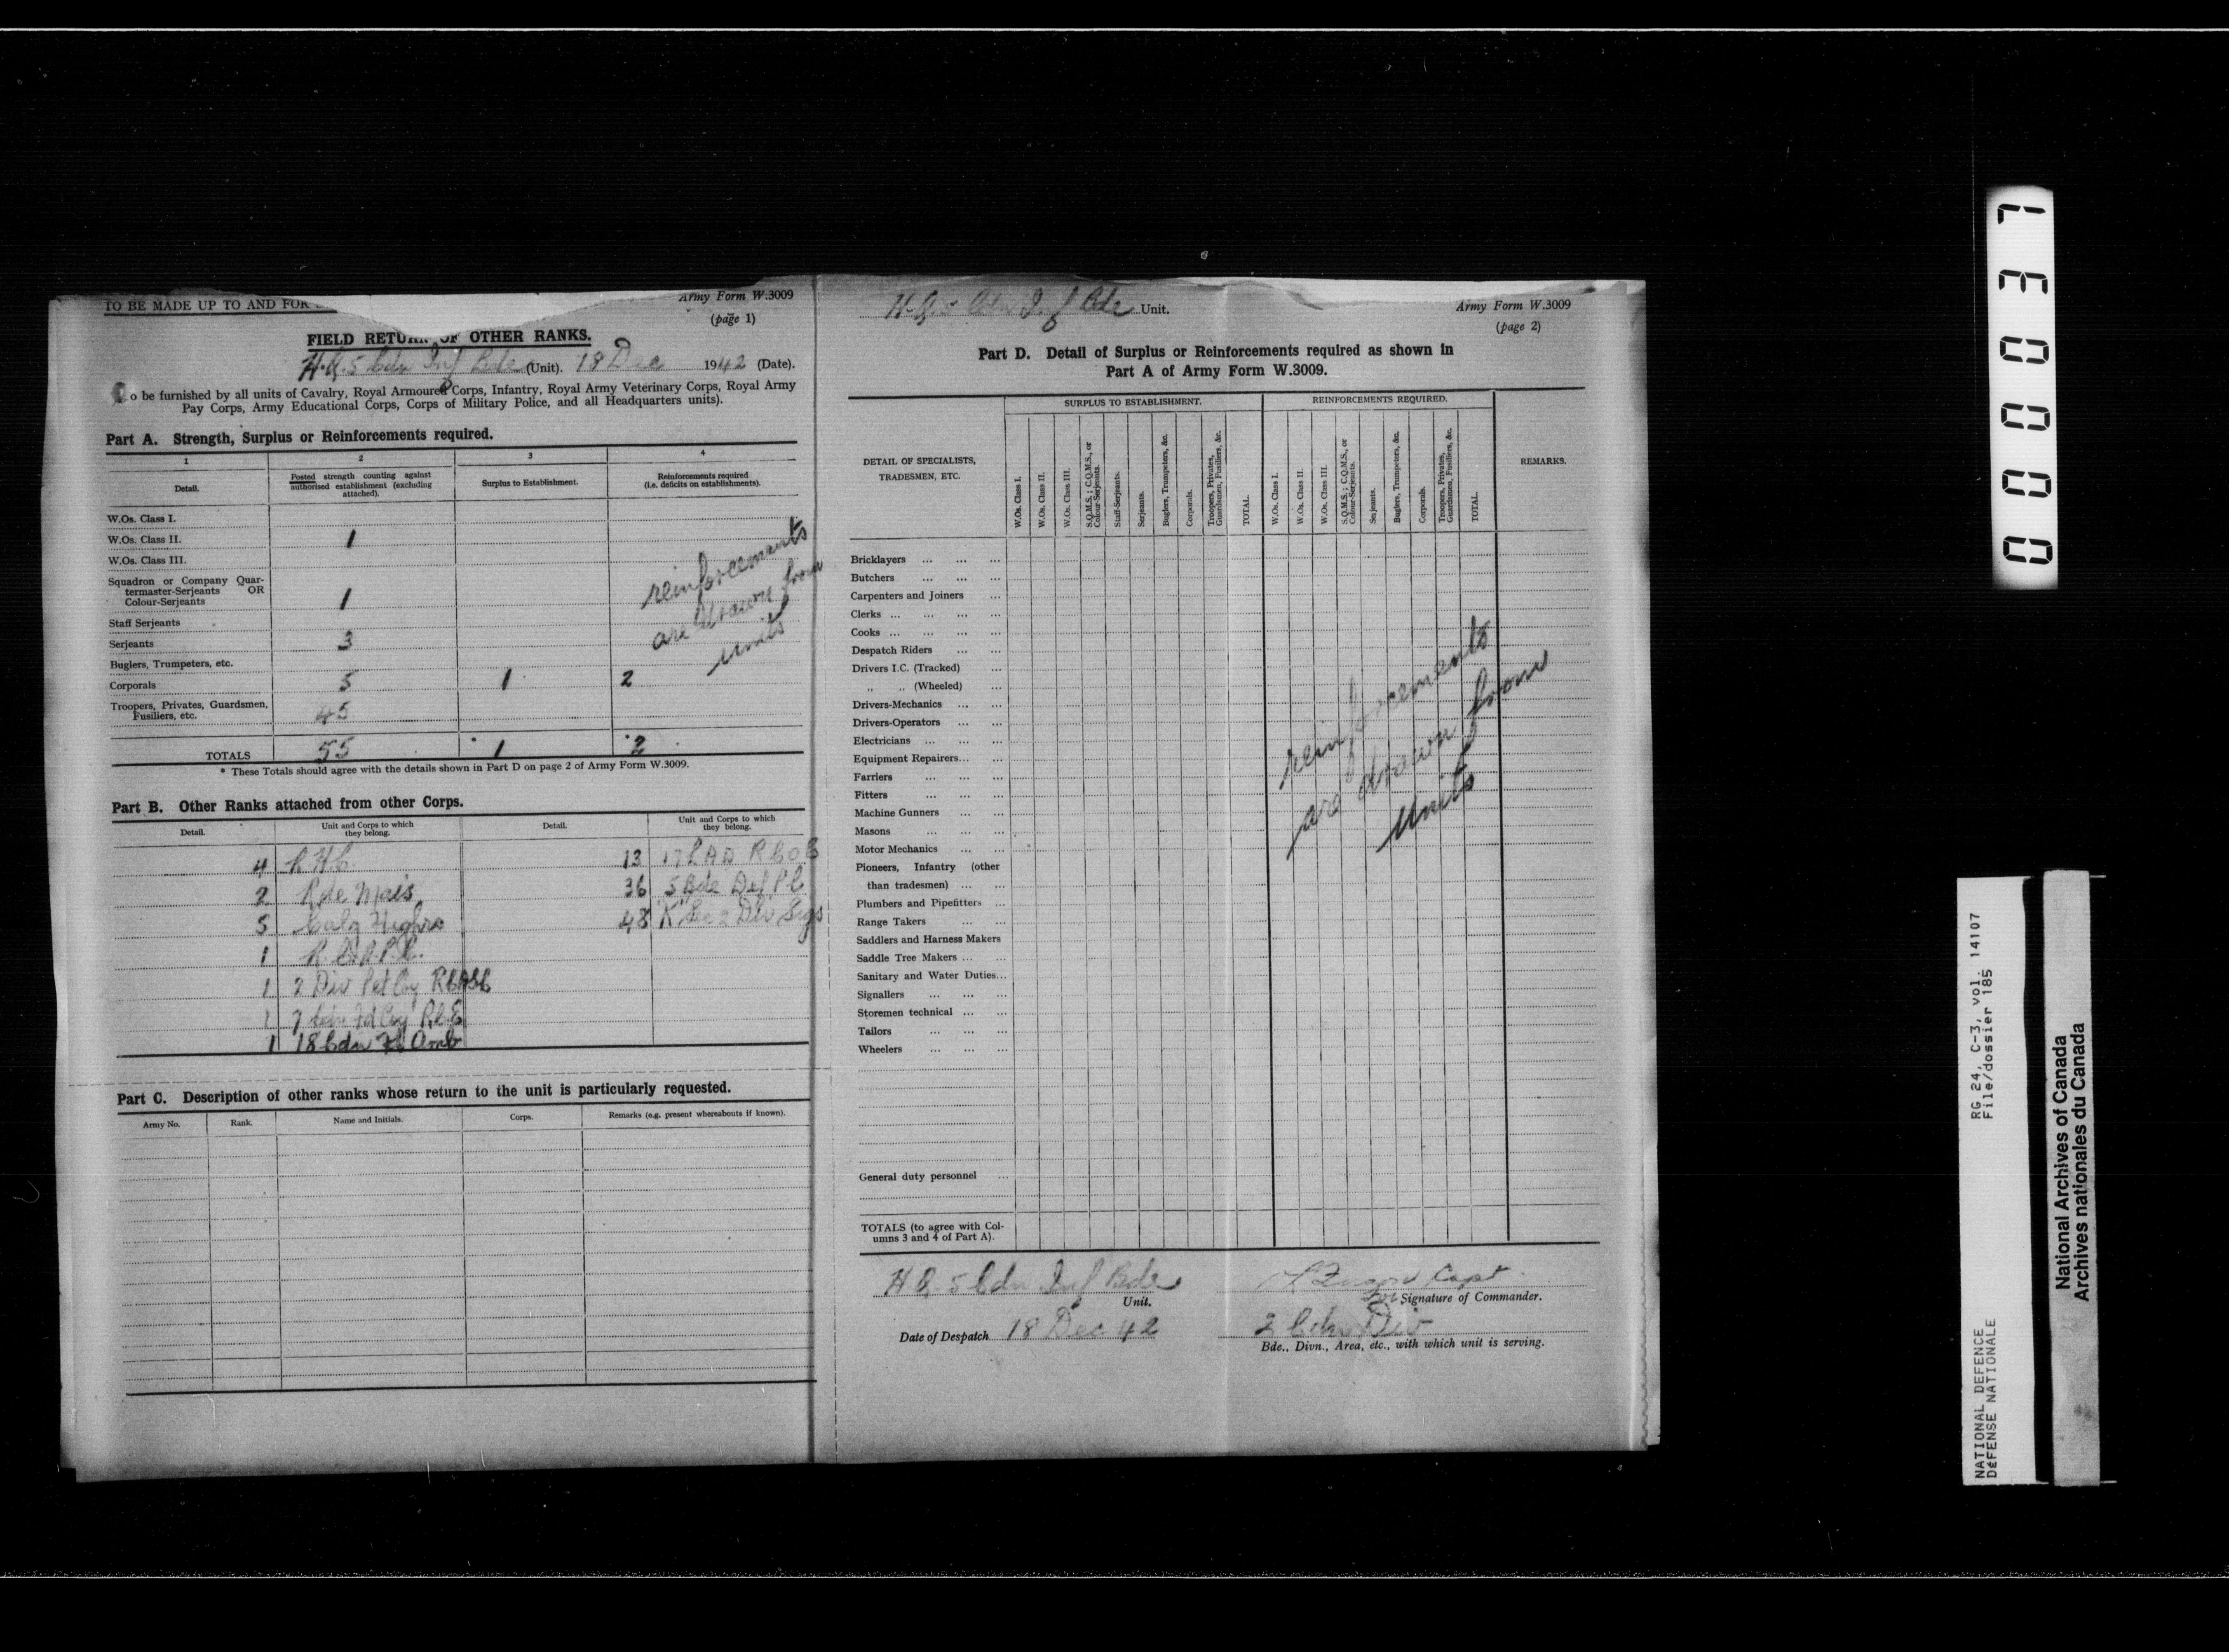 TO BE MADE UP TO AND FOR
Army Form W.3009
(page 1)
FIELD RETURN OF OTHER RANKS.
H.Q. 5 Cdn Inf Bde (Unit). 18 Dec 1942 (Date).
o be furnished by all units of Cavalry, Royal Armoured Corps, Infantry, Royal Army Veterinary Corps, Royal Army
Pay Corps, Army Educational Corps, Corps of Military Police, and all Headquarters units).
Part A. Strength, Surplus or Reinforcements required.
1 2 3 4
Detail. Posted strength counting against authorised establishment (excluding attached). Surplus to Establishment. Reinforcements required (i.e. deficits on establishments).
W.Os. Class I.
W.Os. Class II. 1
W.Os. Class III.
Squadron or Company Quar-
termaster-Serjeants OR
Colour-Serjeants 1
Staff Serjeants
Serjeants 3
Buglers, Trumpeters, etc.
Corporals 5 1 2
Troopers, Privates, Guardsmen,
Fusiliers, etc. 45
reinforcements
are drawn from
units
TOTALS 55 * 1 * 2
* These Totals should agree with the details shown in Part D on page 2 of Army Form W.3009.
Part B. Other Ranks attached from other Corps.
Detail. Unit and Corps to which they belong. Detail. Unit and Corps to which they belong.
4 R.H.C. 13 17 LAD RCOC
2 R de Mais 36 5 Bde Def Pl
5 Calg Highrs 48 K Sec 2 Div Sigs
1
1 2 Div Pet Coy RCASC
1 7 Cdn Fd Coy R.C.E.
1 18 Cdn Fd Amb
Part C. Description of other ranks whose return to the unit is particularly requested.
Army No. Rank. Name and Initials. Corps. Remarks (e.g. present whereabouts if known).
H.Q. 5 Cdn Inf Bde Unit.
Army Form W.3009
(page 2)
Part D. Detail of Surplus or Reinforcements required as shown in
Part A of Army Form W.3009.
DETAIL OF SPECIALISTS,
TRADESMEN, ETC.
SURPLUS TO ESTABLISHMENT.
W.Os. Class I.
W.Os. Class II.
W.Os. Class III.
S.Q.M.S.; C.Q.M.S., or Colour-Serjeants.
Staff-Serjeants.
Serjeants.
Buglers, Trumpeters, &c.
Corporals.
Troopers, Privates, Guardsmen, Fusiliers, &c.
TOTAL.
REINFORCEMENTS REQUIRED.
W.Os. Class I.
W.Os. Class II.
W.Os. Class III.
S.Q.M.S.; C.Q.M.S., or Colour-Serjeants.
Serjeants.
Buglers, Trumpeters, &c.
Corporals.
Troopers, Privates, Guardsmen, Fusiliers, &c.
TOTAL.
REMARKS.
Bricklayers ... ... ...
Butchers ... ... ...
Carpenters and Joiners ...
Clerks ... ... ... ...
Cooks ... ... ... ...
Despatch Riders ... ...
Drivers I.C. (Tracked) ...
„ „ (Wheeled) ...
Drivers-Mechanics ... ...
Drivers-Operators ... ...
Electricians ... ... ...
Equipment Repairers... ...
Farriers ... ... ...
Fitters ... ... ...
Machine Gunners ... ...
Masons ... ... ...
Motor Mechanics ... ...
Pioneers, Infantry (other
than tradesmen) ... ...
Plumbers and Pipefitters ...
Range Takers ... ...
Saddlers and Harness Makers
Saddle Tree Makers ... ...
Sanitary and Water Duties...
Signallers ... ... ...
Storemen technical ... ...
Tailors ... ... ...
Wheelers ... ... ...
reinforcements
are drawn from
units
General duty personnel ...
TOTALS (to agree with Col-
umns 3 and 4 of Part A).
H Q. 5 Cdn Inf Bde
Unit.
Capt.
for Signature of Commander.
Date of Despatch 18 Dec 42
2 Cdn Div
Bde., Divn., Area, etc., with which unit is serving.
000037
NATIONAL DEFENCE RG 24, C-3, vol. 14107
DÉFENSE NATIONALE File/dossier 185
National Archives of Canada
Archives nationales du Canada